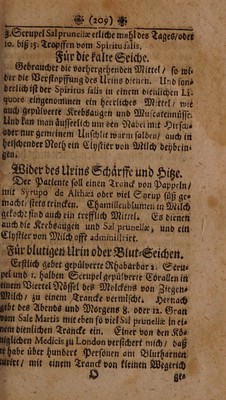 (209)
3. Scrupel Sal prunellæ etliche mahl des Tages/oder
10. biß 15. Tropffen vom Spiritu salis.
Für die kalte Seiche.
Gebrauchet die vorhergehenden Mittel/ so wi-
der die Verstopffung des Urins dienen. Und son-
derlich ist der Spiritus salis in einem dienlichen Li-
quore eingenommen ein herrliches Mittel/ wie
auch gepülverte Krebsaugen und Muscatennüsse.
Und kan man äusserlich um den Nabel mit Hirsch-
oder nur gemeinem Unschlit warm salben/ auch in
heischender Noth ein Clystier von Milch beybrin-
gen.
Wider des Urins Schärffe und Hitze.
Der Patiente soll einen Tranck von Pappeln/
mit Syrupo de Althæa oder viel Syrup süß ge-
macht/ stets trincken. Chamillenblumen in Milch
gekocht sind auch ein trefflich Mittel. Es dienen
auch die Krebsaugen und Sal prunellæ, und ein
Clystier von Milch offt administrirt.
Für blutigen Urin oder Blut-Seichen.
Erstlich gebet gepülverte Rhabarbar 2. Scru-
pel und 1. halben Scrupel gepülverte Corallen in
einem Viertel Nössel des Molckens von Ziegen-
Milch/ zu einem Trancke vermischt. Hernach
gebt des Abends und Morgens 8. oder 12. Gran
vom Sale Martis mit eben so viel Sal prunellæ in ei-
nem dienlichen Trancke ein. Einer von den Kö-
niglichen Medicis zu London versichert mich/ daß
er habe über hundert Personen am Blutharnen
curiret/ mit einem Tranck von kleinen Wegerich
O
ges